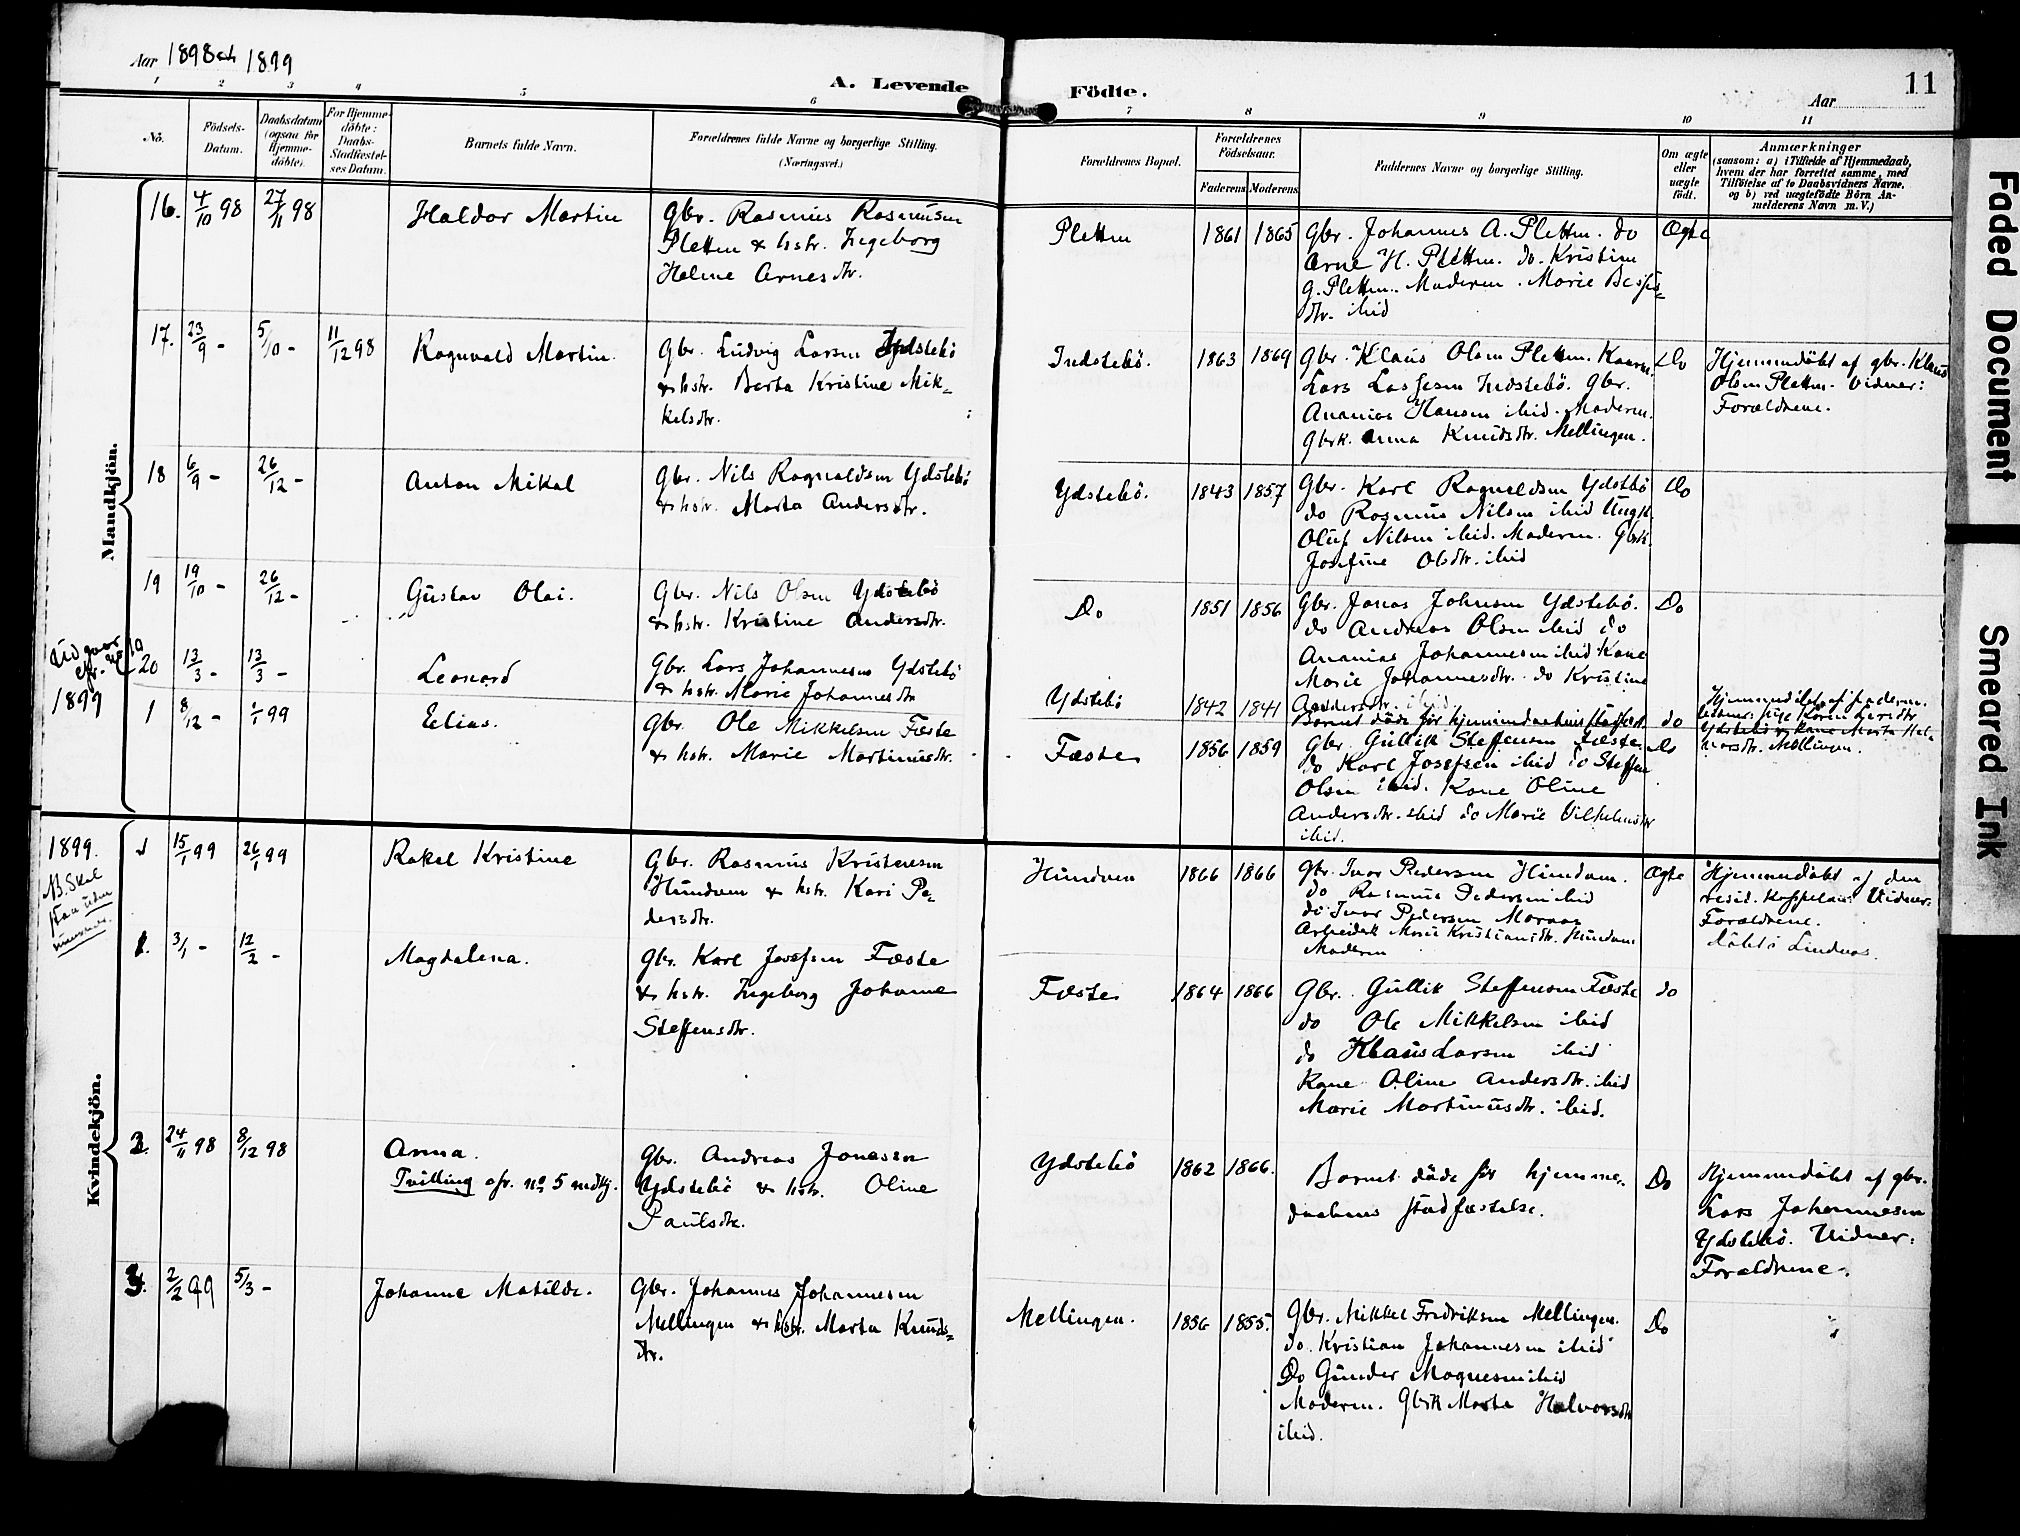 Aar 1898 og 1899
A. Levende Födte.
11
Aar
1 2 3 4 5 6 7 8 9 10 11
No.
Födsels-Datum.
Daabsdatum (ogsaa for Hjemme-döbte).
For Hjemme-döbte: Daabs-Stadfæstel-ses Datum.
Barnets fulde Navn.
Forældrenes fulde Navne og borgerlige Stilling.
(Næringsvei.)
Forældrenes Bopæl.
Forældrenes Födselsaar.
Faderens Moderens
Faddernes Navne og borgerlige Stilling.
Om ægte eller uægte födt.
Anmærkninger
(saasom: a) i Tilfælde af Hjemmedaab,
hvem der har forrettet samme, med
Tilföielse af to Daabsvidners Navne,
og b) ved uægtefödte Börn An-
melderens Navn m. V.)
Mandkjön.
16. 4/10 98 27/11 98 Haldor Martin
Gbr. Rasmus Rasmusen
Pletten & hstr. Ingeborg
Heline Arnesdtr.
Pletten 1861 1865
Gbr. Johannes A. Pletten. do
Arne H. Pletten. do. Kristian
G. Pletten. Moderen. Marie
dtr. ibid
Ægte
17. 23/9 - 5/10 - 11/12 98 Ragnvald Martin
Gbr. Ludvig Larsen Indstebö
& hstr. Berta Kristine Mik-
kelsdtr.
Indstebö. 1863 1869
Gbr. Klaus Olsen Pletten.
Lars Lassesen Indstebö. Gbr.
Ananias Hansen ibid. Moderen.
Gbrk. Anna Knudsdtr. Mellingen.
Do
Hjemmedöbt af gbr. Klaus
Olsen Pletten. Vidner:
Forældrene.
18 6/9 - 26/12 - Anton Mikal
Gbr. Nils Ragnaldsen Ydstebö
& hstr. Marta Andersdtr.
Ydstebö. 1843 1857
Gbr. Karl Ragnaldsen Ydstebö
do Rasmus Nilsen ibid Ungk.
Oluf Nilsen ibid. Moderen. Gbrk.
Josefine Olsdtr. ibid
Do
19 19/10 - 26/12 - Gustav Olai.
Gbr. Nils Olsen Ydstebö
& hstr. Kristine Andersdtr.
Do 1851 1856
Gbr. Jonas Johnsen Ydstebö.
do Andreas Olsen ibid do
Ananias Johannesen ibid Kone
Marie Johannesdtr. do Kristine
Andersdtr. ibid.
Do
20 13/3 - 13/3 - Leonard
Gbr. Lars Johannesen Ydstebö
& hstr. Marie Johannesdtr
Ydstebö 1842 1841
Barnet döde för hjemmedaabens stadfæst.
do
Hjemmedöbt af faderen.
Ydstebö & kone Marta Hal-
vorsdtr. Mellingen.
1899
1 8/12 - 1/1 99 Elias.
Gbr. Ole Mikkelsen Fæste
& hstr. Marie Martinusdtr.
Fæste 1856 1859
Gbr. Gullik Steffensen Fæste
do Karl Josefsen ibid do Steffen
Olsen ibid. Kone Oline
Andersdtr. ibid do Marie Vilhelmsdtr
ibid.
do
Kvindekjön.
1899.
NB. Skal
staa uden
1 15/1 99 26/1 99 Rakel Kristine
Gbr. Rasmus Kristensen
Hundven & hstr. Kari Pe-
dersdtr.
Hundven 1866 1866
Gbr. Ivar Pedersen Hundven.
do Rasmus Pedersen ibid
do Ivar Pedersen
Marie Kristiansdtr. Hundven
Moderen
Ægte
Hjemmedöbt af den
resid. Kappelan. Vidner:
Forældrene.
döbt i Lindaas.
1. 3/1 - 12/2 - Magdalena.
Gbr. Karl Josefsen Fæste
& hstr. Ingeborg Johanne
Steffensdtr.
Fæste 1864 1866
Gbr. Gullik Steffensen Fæste
do Ole Mikkelsen ibid
do Klaus Larsen ibid
Kone Oline Andersdtr. ibid
Marie Martinusdtr. ibid.
do
2. 24/11 98 8/12 98 Anna.
Tvilling cfr. no 5 mdkj.
Gbr. Andreas Jonassen
Ydstebö & hstr. Oline
Paulsdtr.
Ydstebö 1862 1866.
Barnet döde för hjemme-
daabens stadfæstelse.
Do
Hjemmedöbt af gbr.
Lars Johannesen
Ydstebö. Vidner:
Forældrene.
3. 2/2 99 5/3 - Johanne Matilde.
Gbr. Johannes Johannesen
Mellingen & hstr. Marta Knuds-
dtr.
Mellingen. 1856 1855.
Gbr. Mikkel Fredriksen Mellingen.
do. Kristian Johannesen ibid
Do Gunder Magnesen ibid
Moderen. Gbrk Marta Halvorsdtr
ibid.
Do
Faded Document
Smeared Ink